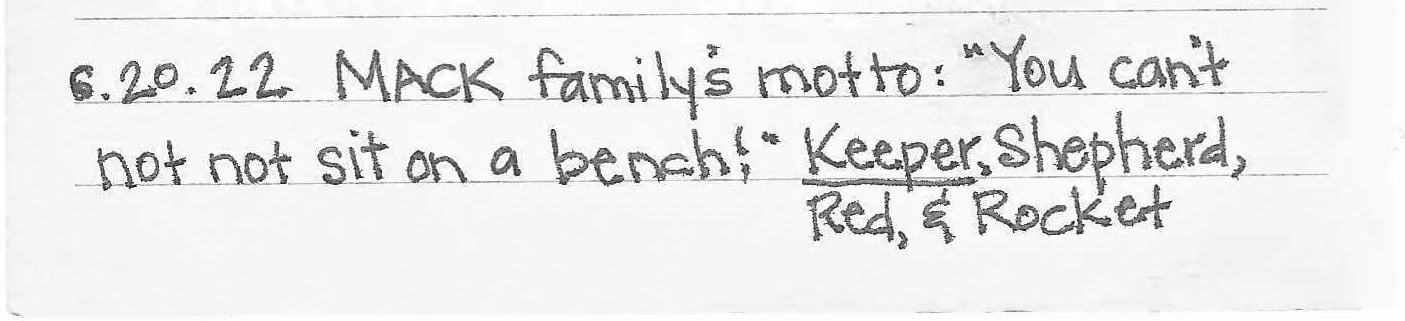 6.20.22 MACK family's motto: "You can't
not not sit on a bench!" Keeper, Shepherd,
Red, & Rocket